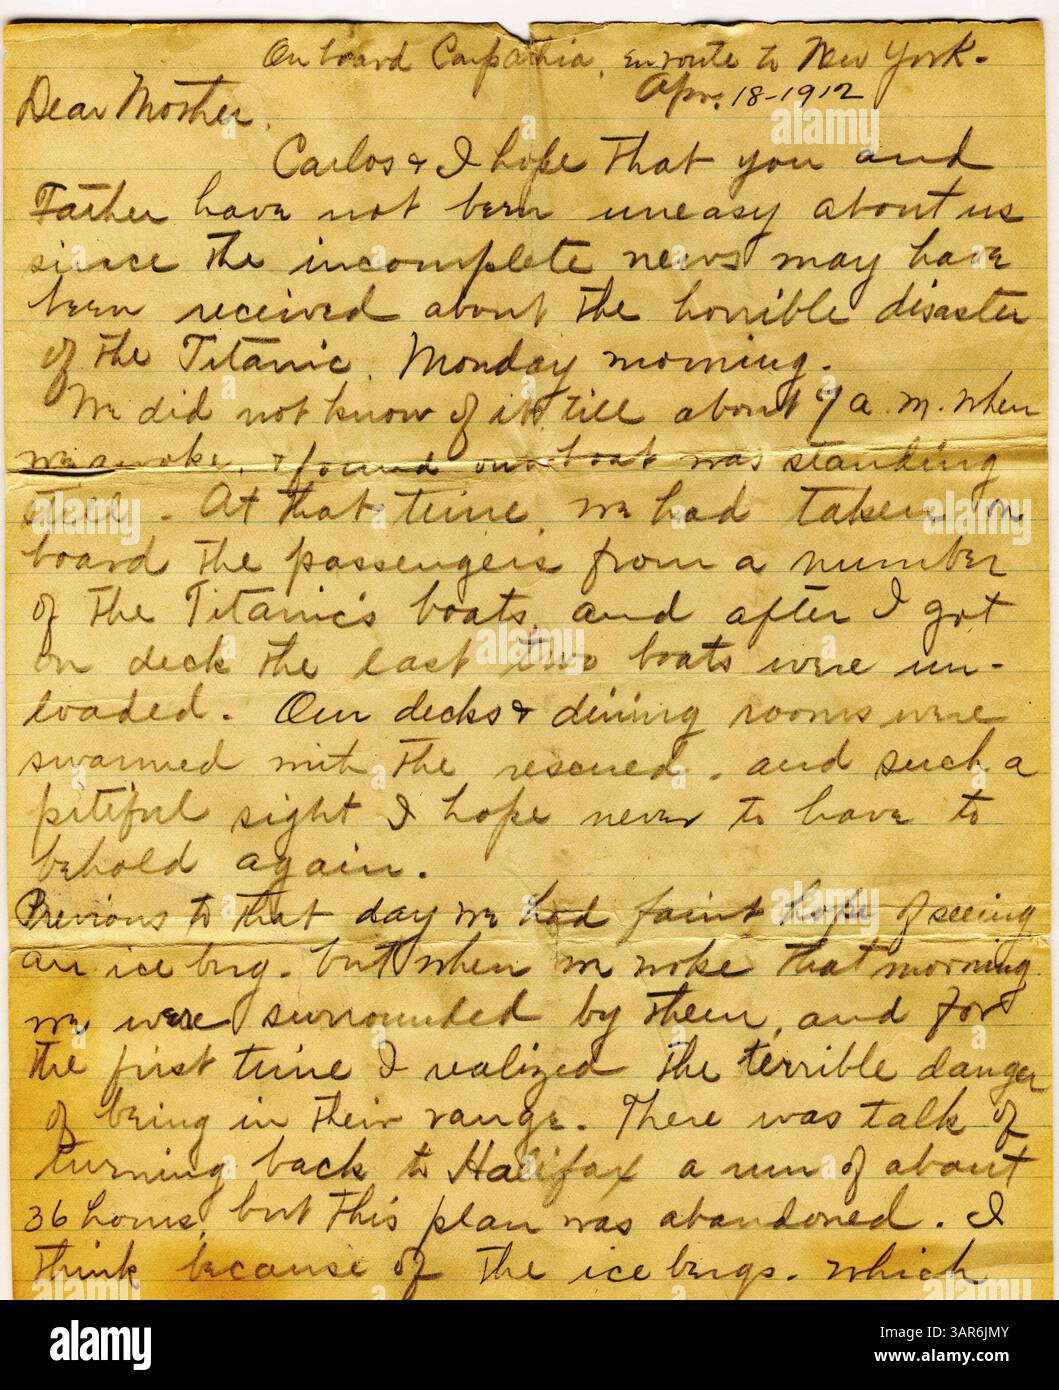 On board Carpathia, enroute to New York.
Apr. 18-1912
Dear Mother,
Carlos & I hope that you and
Father have not been uneasy about us
since the incomplete news may have
been received about the horrible disaster
of the Titanic, Monday morning.
We did not know of it till about 7 a.m. when
we awoke, & found our boat was standing
still. At that time, we had taken on
board the passengers from a number
of the Titanic's boats, and after I got
on deck the last two boats were un-
loaded. Our decks & dining rooms were
swarmed with the rescued, and such a
pitiful sight I hope never to have to
behold again.
Previous to that day we had faint hope of seeing
an ice berg, but when we woke that morning
we were surrounded by them, and for
the first time I realized the terrible danger
of being in their range. There was talk of
turning back to Halifax a run of about
36 hours, but this plan was abandoned. I
think because of the ice bergs. which
alamy
Image ID: 3AR6JMY
www.alamy.com